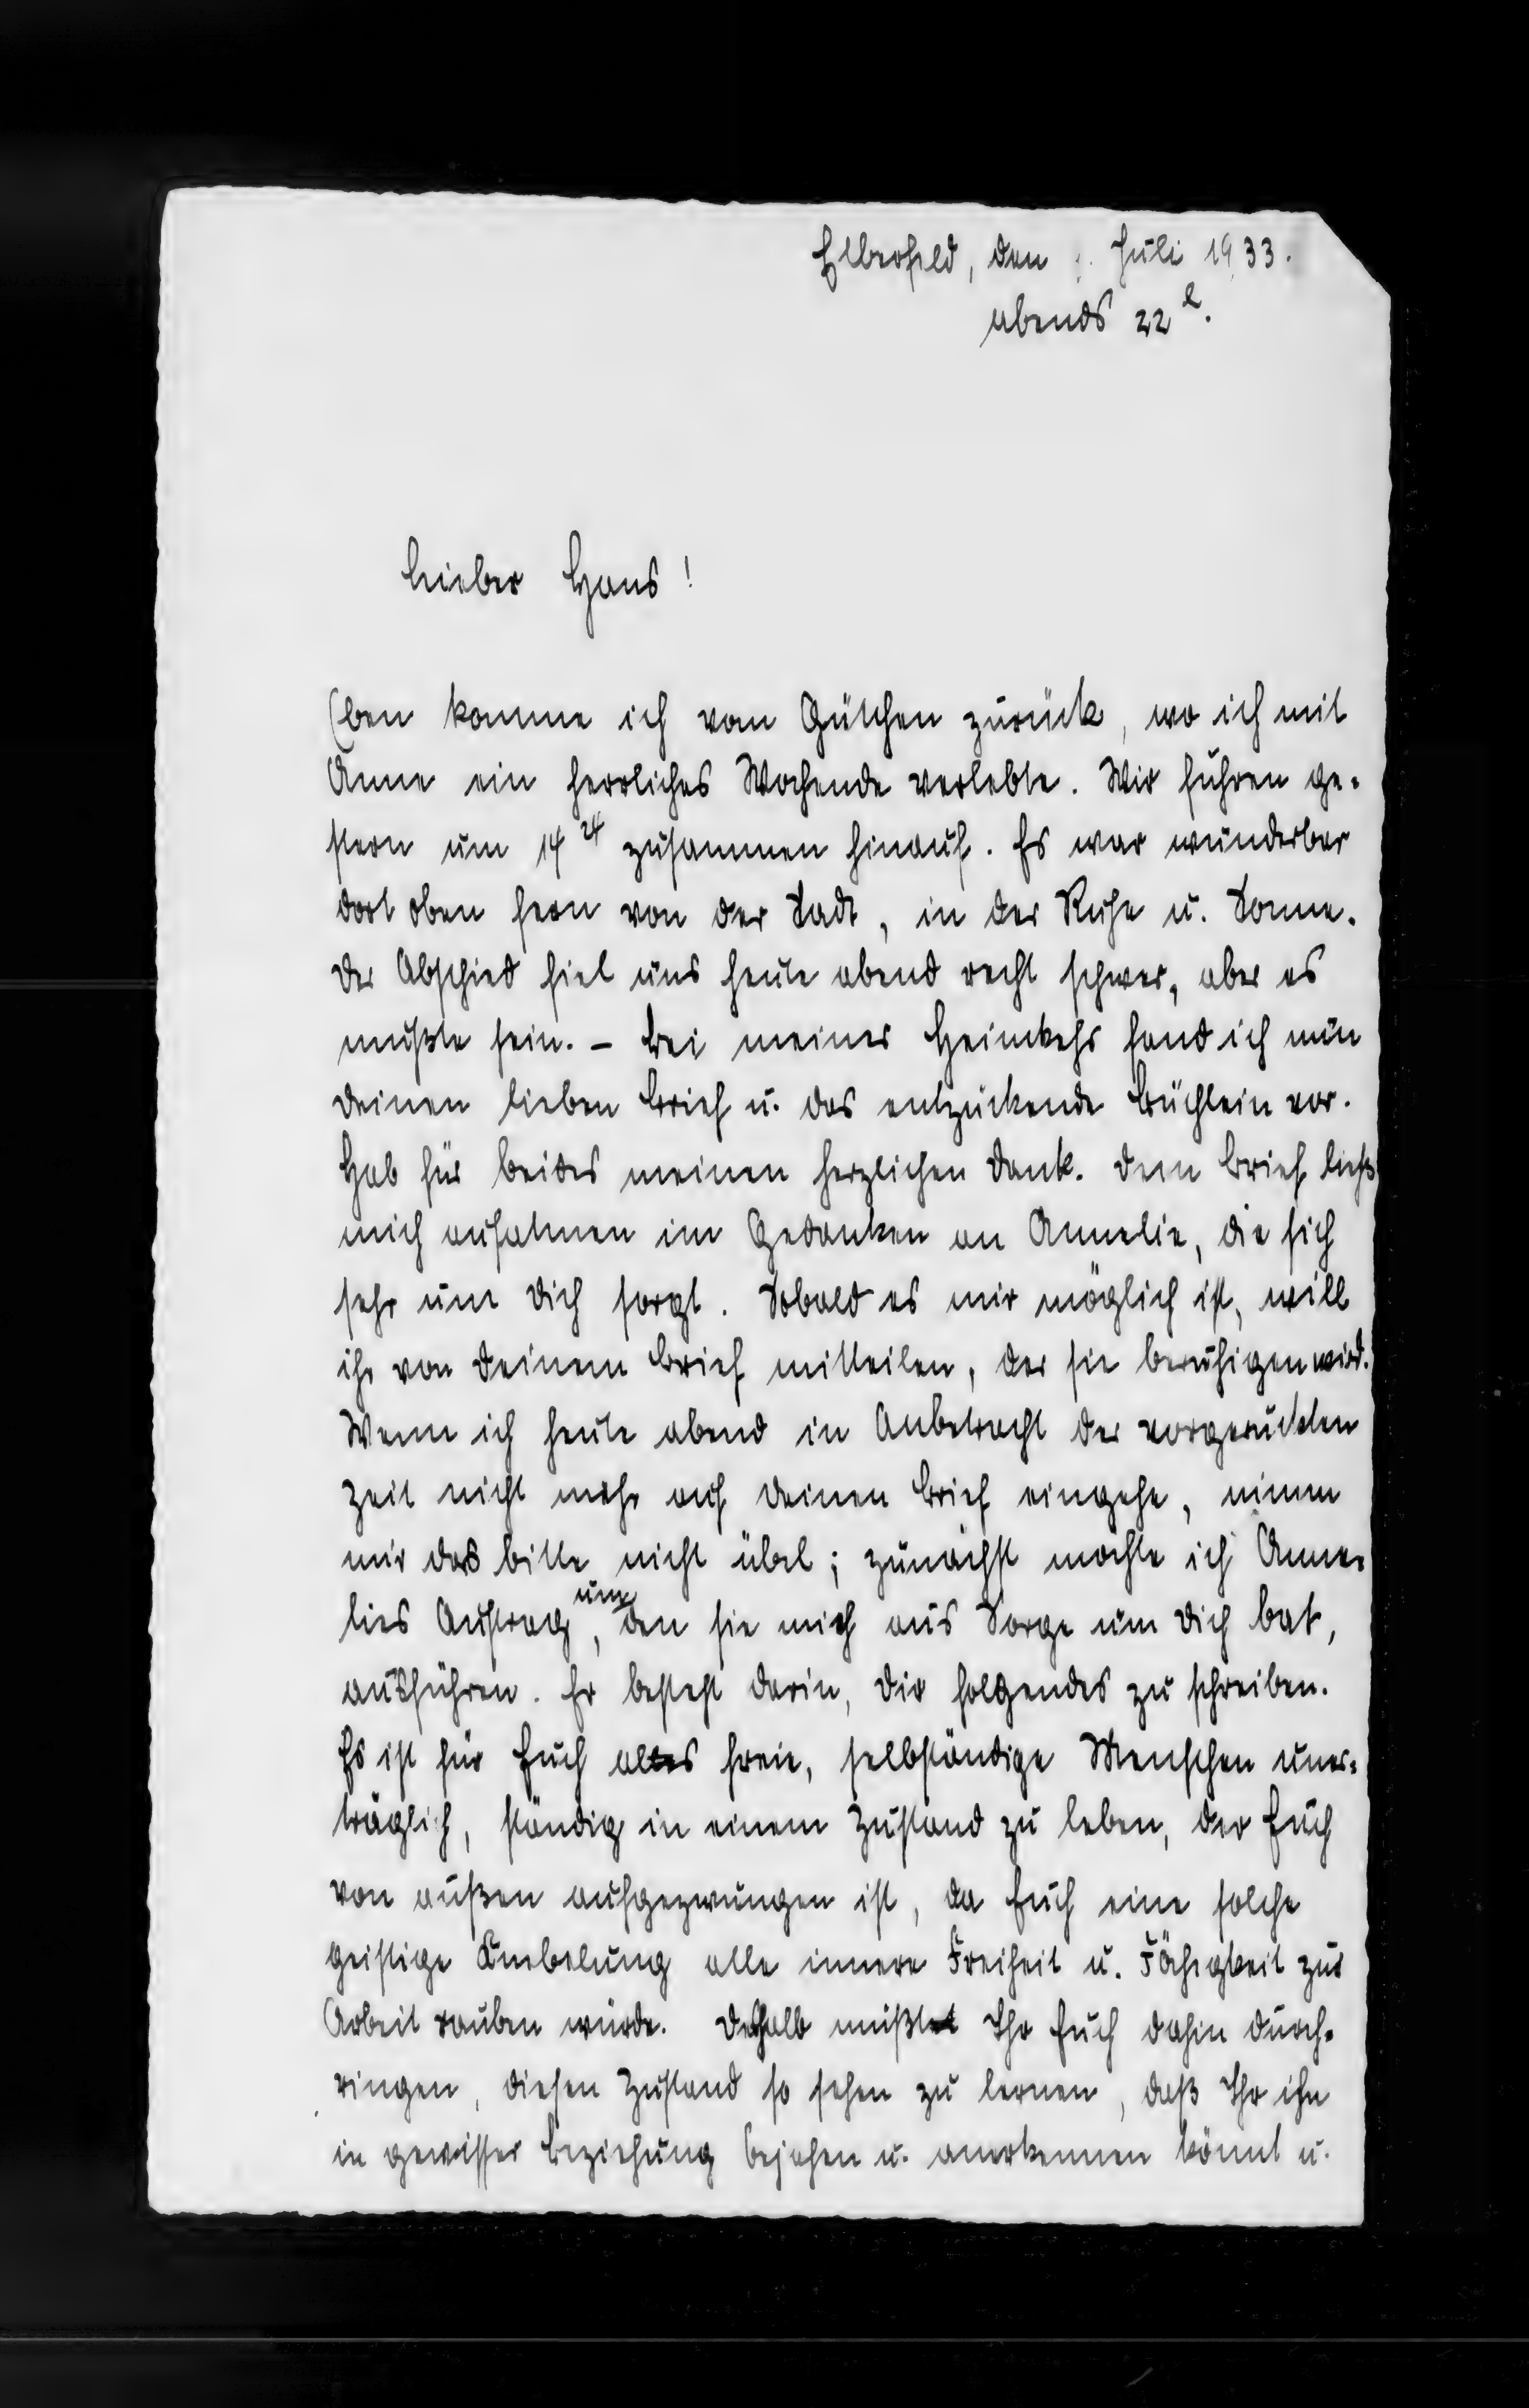 Elberfeld, den . Juli 1933.
abends 22 h.
Lieber Hans!
Eben komme ich vom Gütchen zurück, wo ich mit
Anne ein herrliches Wochende verlebte. Wir fuhren ge-
stern um 14 24 zusammen hinauf. Es war wunderbar
dort oben fern von der Stadt, in der Ruhe u. Sonne.
Der Abschied fiel uns heute abend recht schwer, aber es
mußte sein. – Bei meiner Heimkehr fand ich nun
Deinen lieben Brief u. das entzückende Büchlein vor.
Hab für beides meinen herzlichen Dank. Dein Brief ließ
mich aufatmen im Gedanken an Annelie, die sich
sehr um Dich sorgt. Sobald es mir möglich ist, will
ihr von Deinem Brief mitteilen, der sie beruhigen wird.
Wenn ich heute abend in Anbetracht der vorgerückten
Zeit nicht mehr auf Deinen Brief eingehe, nimm
mir das bitte nicht übel; zunächst möchte ich Anne-
lies Auftrag, um den sie mich aus Sorge um Dich bat,
ausführen. Er besteht darin, Dir folgendes zu schreiben.
Es ist für Euch als freie, selbständige Menschen uner-
träglich, ständig in einem Zustand zu leben, der Euch
von außen aufgezwungen ist, da Euch eine solche
geistige Knebelung alle innere Freiheit u. Fähigkeit zur
Arbeit rauben würde. Deshalb müßt Ihr Euch dahin durch-
ringen, diesen Zustand so sehen zu lernen, daß Ihr ihn
in gewisser Beziehung bejahen u. anerkennen könnt u.